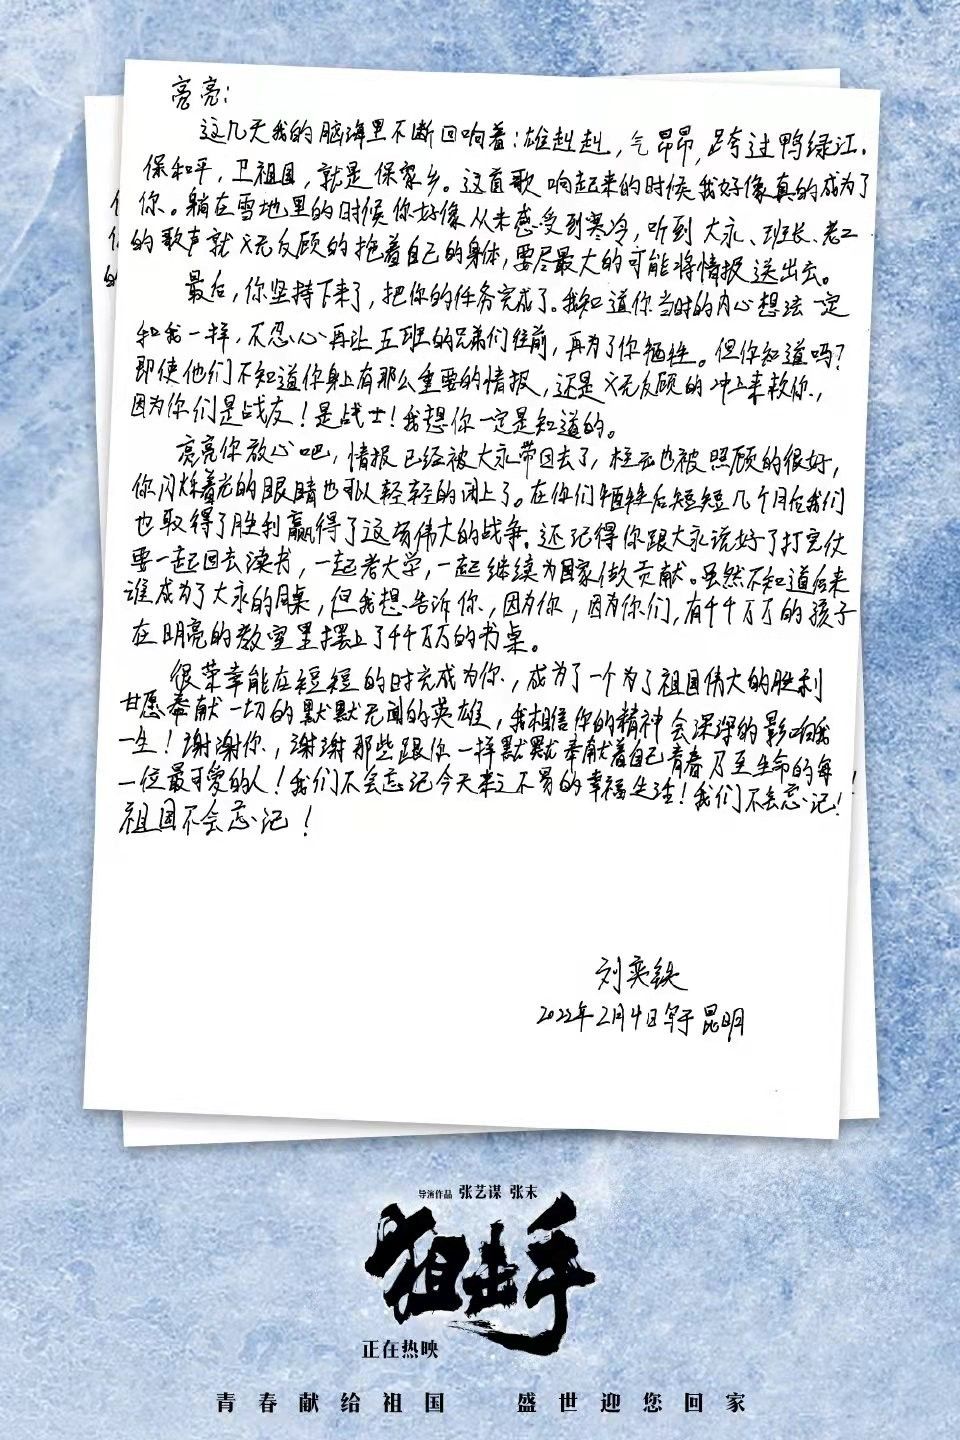 亮亮:
这几天我的脑海里不断回响着:雄赳赳,气昂昂,跨过鸭绿江.
保和平,卫祖国,就是保家乡。这首歌响起来的时候我好像真的成为了
你。躺在雪地里的时候你好像从未感受到寒冷,听到大永、班长、老工
的歌声就义无反顾的拖着自己的身体,要尽最大的可能将情报送出去。
最后,你坚持下来了,把你的任务完成了。我知道你当时的内心想法一定
和我一样,不忍心再让五班的兄弟们往前,再为了你牺牲。但你知道吗?
即使他们不知道你身上有那么重要的情报,还是义无反顾的冲上来救你,
因为你们是战友!是战士!我想你一定是知道的。
亮亮你放心吧,情报已经被大永带回去了,柱云也被照顾的很好,
你闪烁着光的眼睛也可以轻轻的闭上了。在你们牺牲后短短几个月后我们
也取得了胜利赢得了这场伟大的战争。还记得你跟大永说好了打完仗
要一起回去读书,一起考大学,一起继续为国家做贡献。虽然不知道后来
谁成为了大永的同桌,但我想告诉你,因为你,因为你们,有千千万万的孩子
在明亮的教室里摆上了千千万万的书桌。
很荣幸能在短短的时光成为你,成为了一个为了祖国伟大的胜利
甘愿奉献一切的默默无闻的英雄,我相信你的精神会深深的影响我
一生!谢谢你,谢谢那些跟你一样默默奉献着自己青春乃至生命的每
一位最可爱的人!我们不会忘记今天来之不易的幸福生活!我们不会忘记!
祖国不会忘记!
刘奕铁
2022年2月4日写于昆明
导演作品 张艺谋 张末
狙击手
正在热映
青春献给祖国 盛世迎您回家